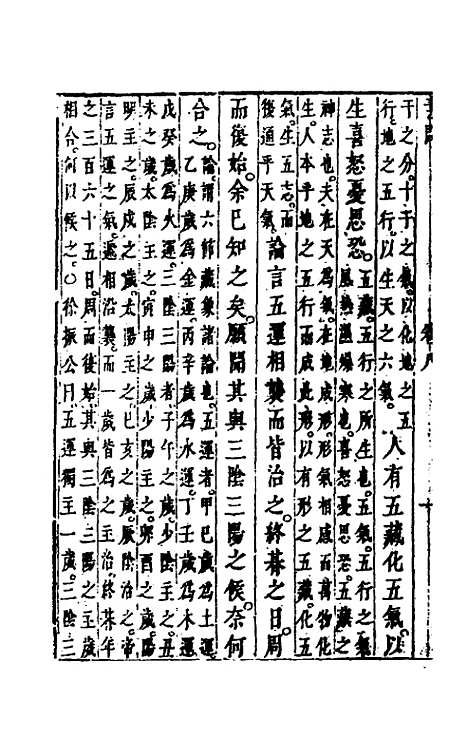 干之分。十干之氣。以化地之五
行。地之五行。以生天之六氣。
人有五藏化五氣。以
生喜怒憂思恐。
五藏。五行之所生也。五氣。五行之
風熱濕燥寒也。喜怒憂思恐。五藏之
神志也。夫在天爲氣。在地成形。形氣相感而萬物化
生。人本乎地之五行而成此形。以有形之五藏。化五
氣。生五志。而
後通乎天氣。
論言五運相襲而皆治之。終朞之日。周
而復始。余已知之矣。願聞其與三陰三陽之候。奈何
合之。
論謂六節藏象諸論也。五運者。甲巳歲爲土運。
乙庚歲爲金運。丙辛歲爲水運。丁壬歲爲木運。
戊癸歲爲火運。三陰三陽者。子午之歲。少陰主之。丑
未之歲。太陰主之。寅申之歲。少陽主之。卯酉之歲。陽
明主之。辰戌之歲。太陽主之。巳亥之歲。厥陰治之。帝
言五運之氣。遞相沿襲。而一歲皆爲之主治。終朞年
之三百六十五日。周而復始。其與三陰三陽之主歲
相合。何以候之。○徐振公曰。五運獨主一歲。三陰三